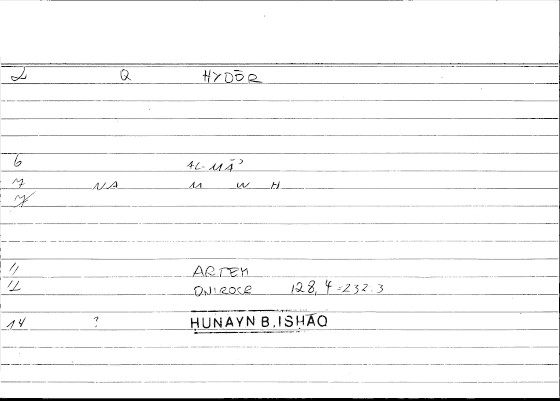 2 Q HYDŌR
6 AL-MĀʾ
7 NA M W H
11 ARTEM
12 ONIROCR 128,4 = 232.3
14 ? HUNAYN B. ISHĀQ